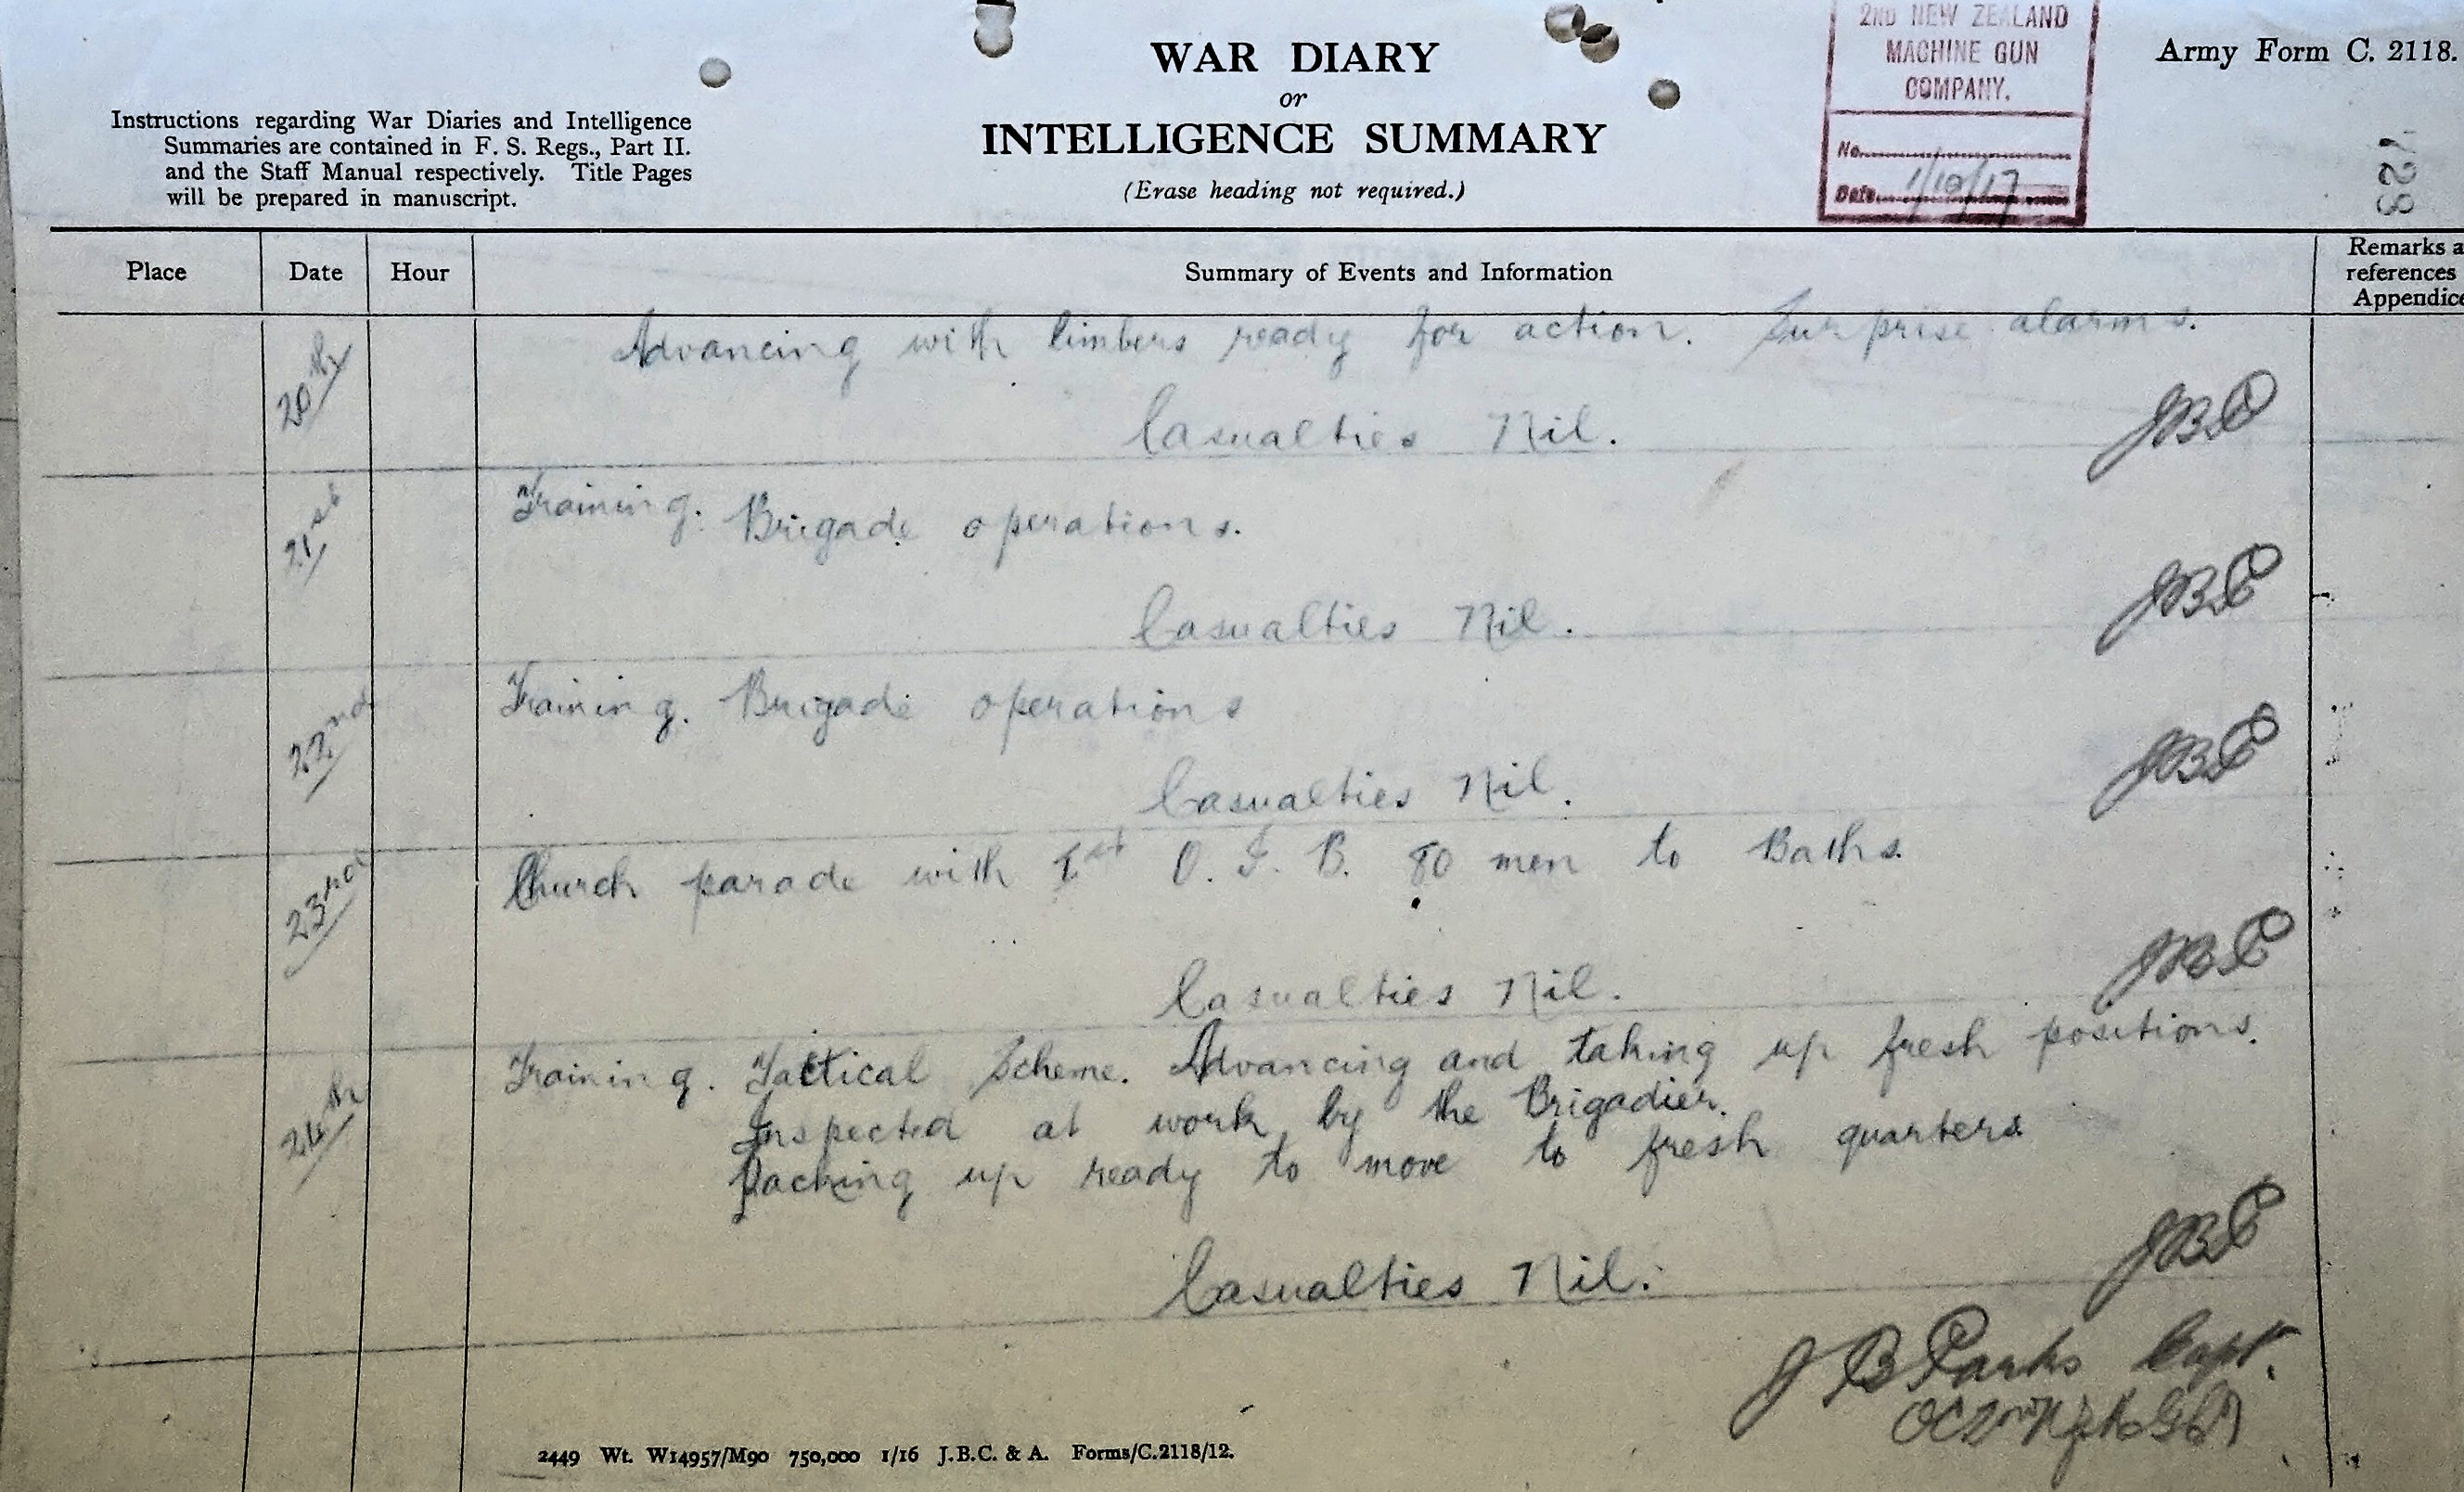 2ND NEW ZEALAND
MACHINE GUN
COMPANY.
No.
Date 1/10/17
Army Form C. 2118.
WAR DIARY
or
INTELLIGENCE SUMMARY
(Erase heading not required.)
Instructions regarding War Diaries and Intelligence
Summaries are contained in F. S. Regs., Part II.
and the Staff Manual respectively. Title Pages
will be prepared in manuscript.
Place Date Hour Summary of Events and Information Remarks a
references
Appendice
20th Advancing with limbers ready for action. Surprise alarms.
Casualties Nil. JBP
21st Training. Brigade operations.
Casualties Nil. JBP
22nd Training. Brigade operations
Casualties Nil. JBP
23rd Church parade with 1st O. I. B. 80 men to Baths.
Casualties Nil. JBP
24th Training. Tactical Scheme. Advancing and taking up fresh positions.
Inspected at work by the Brigadier.
Packing up ready to move to fresh quarters
Casualties Nil. JBP
J B Parks Capt.
OC 2nd NZ
2449 Wt. W14957/M90 750,000 1/16 J.B.C. & A. Forms/C.2118/12.